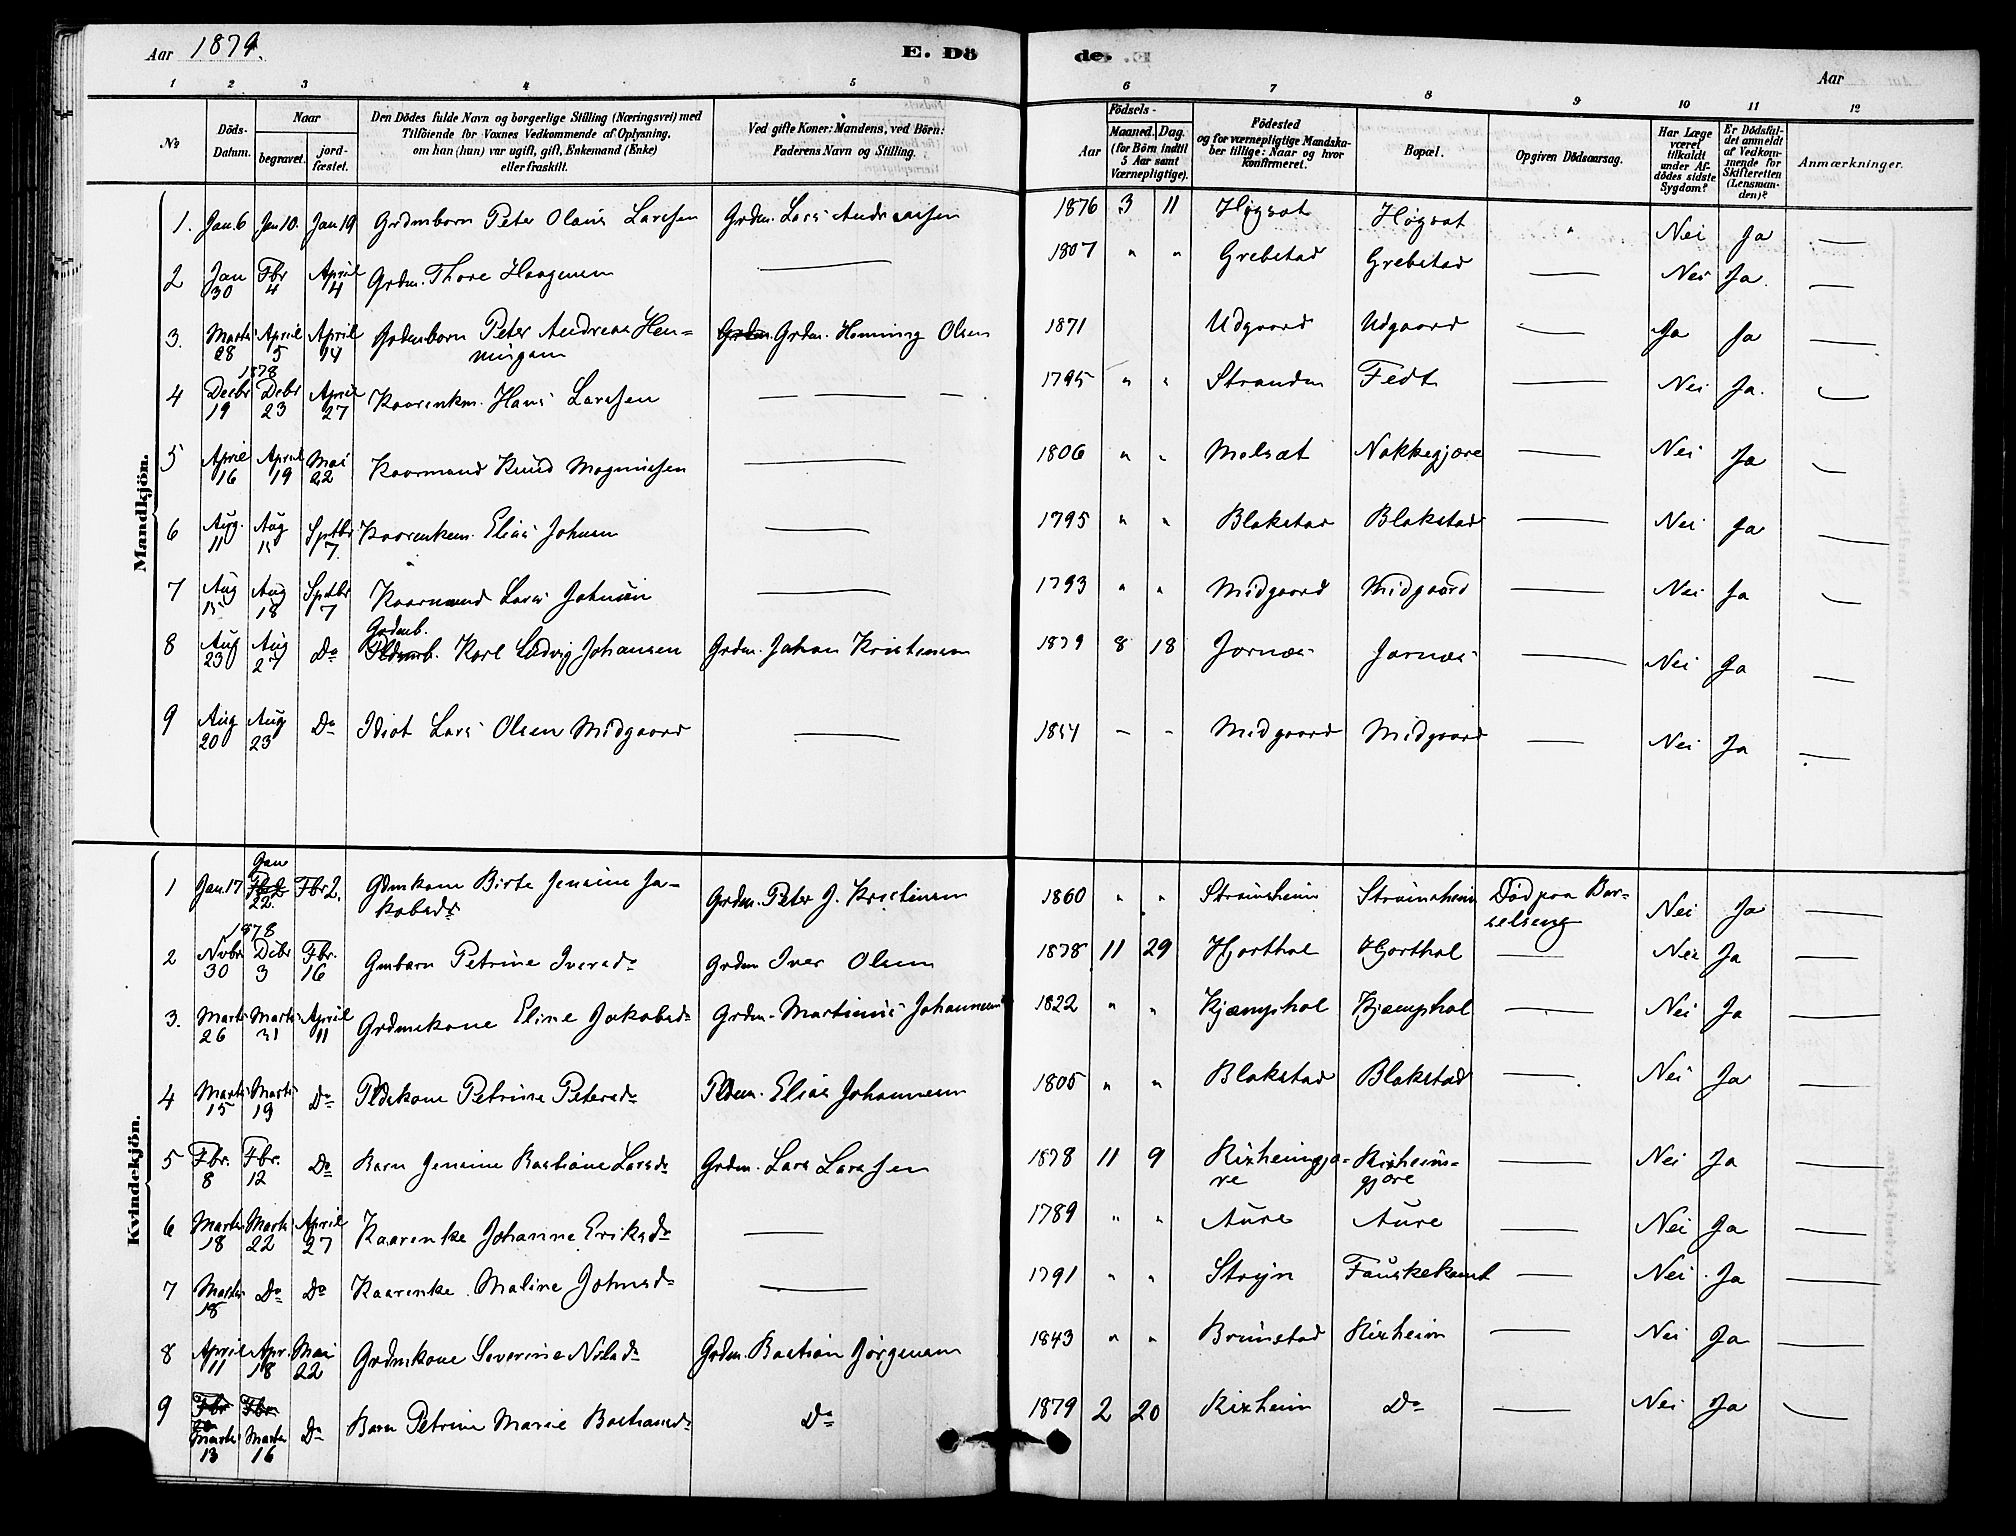 Aar 1879.
E. Döde.
Aar
1 2 3 4 5 6 7 8 9 10 11 12
No
Döds-Datum.
Naar
begravet.
jordfæstet.
Den Dödes fulde Navn og borgerlige Stilling (Næringsvei) med
Tilföiende for Voxnes Vedkommende af Oplysning,
om han (hun) var ugift, gift, Enkemand (Enke)
eller fraskilt.
Ved gifte Koner: Mandens, ved Börn:
Faderens Navn og Stilling.
Födsels-
Aar
Maaned. Dag.
(for Börn indtil
5 Aar samt
Værnepligtige).
Födested
og for værnepligtige Mandska-
ber tillige: Naar og hvor
konfirmeret.
Bopæl.
Opgiven Dödsaarsag.
Har Læge
været
tilkaldt
under Af-
dödes sidste
Sygdom?
Er Dödsfal-
det anmeldt
af Vedkom-
mende for
Skifteretten
(Lensman-
den)?
Anmærkninger.
Mandkjön.
1. Jan. 6 Jan 10. Jan 19 Grdmborn Peter Olaus Larssen Grdm. Lars Andreassen 1876 3 11 Høgsæt Høgsæt " Nei Ja —
2 Jan 30 Fbr 4 April 4 Grdm. Thore Haagensen — 1807 " " Grebstad Grebstad — Nei Ja. —
3. Marts 28 April 5 April 14 Grdmborn Peter Andreas Hen-
ningsen Grdm. Grdm. Henning Olsen 1871 Udgaard Udgaard — Ja Ja —
1878
4 Decbr 19 Debr 23 April 27 Kaarenkm. Hans Larssen — — — 1795 " " Stranden Fedt — Nei Ja. —
5 April 16 April 19 Mai 22 Kaarmand Knud Magnussen — 1806 " " Melsæt Nakkegjære — Nei Ja —
6 Aug. 11 Aug 15 Sptbr 7. Kaarenkem. Elias Johnsen — 1795 " " Blakstad Blakstad — Nei Ja —
7 Aug 15 Aug 18 Sptbr 7 Kaarmand Lars Johnsen — 1793 " " Midgaard Midgaard — Nei Ja —
Grdmb.
8 Aug 23 Aug 27 Do Karl Ludvig Johansen Grdm. Johan Kristensen 1879 8 18 Jarnes Jarnes — Nei Ja —
9 Aug 20 Aug 23 Do Idiot Lars Olsen Midgaard — 1854 — — Midgaard Midgaard — Nei Ja —
Kvindekjön.
1 Jan. 17 Jan 22. Fbr 2. Gdmkone Birte Jensine Ja-
kobsdr Grdm. Peter J. Kristensen 1860 " " Straumsheim Straumsheim Død paa Bar-
selseng Nei Ja —
1878
2 Novbr 30 Debr 3 Fbr. 16 Gmbarn Petrine Iversdr Grdm Iver Olsen 1878 11 29 Hjorthol Hjorthol — Nei Ja —
3. Marts 26 Marts 31 April 11 Grdmskone Eline Jakobsdr Grdm. Martinus Johannessen 1822 " " Kjæmphol Kjæmphol — Nei Ja —
4 Marts 15 Marts 19 Do Pldskone Petrine Petersdr Pldsm. Elias Johannesen 1805 " " Blakstad Blakstad — Nei Ja —
5 Fbr. 8 Fbr. 12 Do Barn Jensine Bastiane Larsdr Grdm. Lars Larssen 1878 11 9 Rixheimgjæ-
re Rixheims-
gjære — Nei Ja —
6 Marts 18 Marts 22 April 27 Kaarenke Johanne Eriksdr — 1789 " " Aure Aure — Nei Ja —
7 Marts 18 Do Do Kaarenke Maline Johnsdr — 1791 " " Stryn Fauskekamt — Nei Ja —
8 April 11 Apr. 18 Mai 22 Grdmkone Severine Nilsdr Grdm. Bastian Jørgensen 1843 " " Brunstad Rixheim — Nei Ja —
9 Fbr 20 Fbr
Marts 13 Marts 16 Do Barn Petrine Marie Bastiansdr Do 1879 2 20 Rixheim Do — Nei Ja —